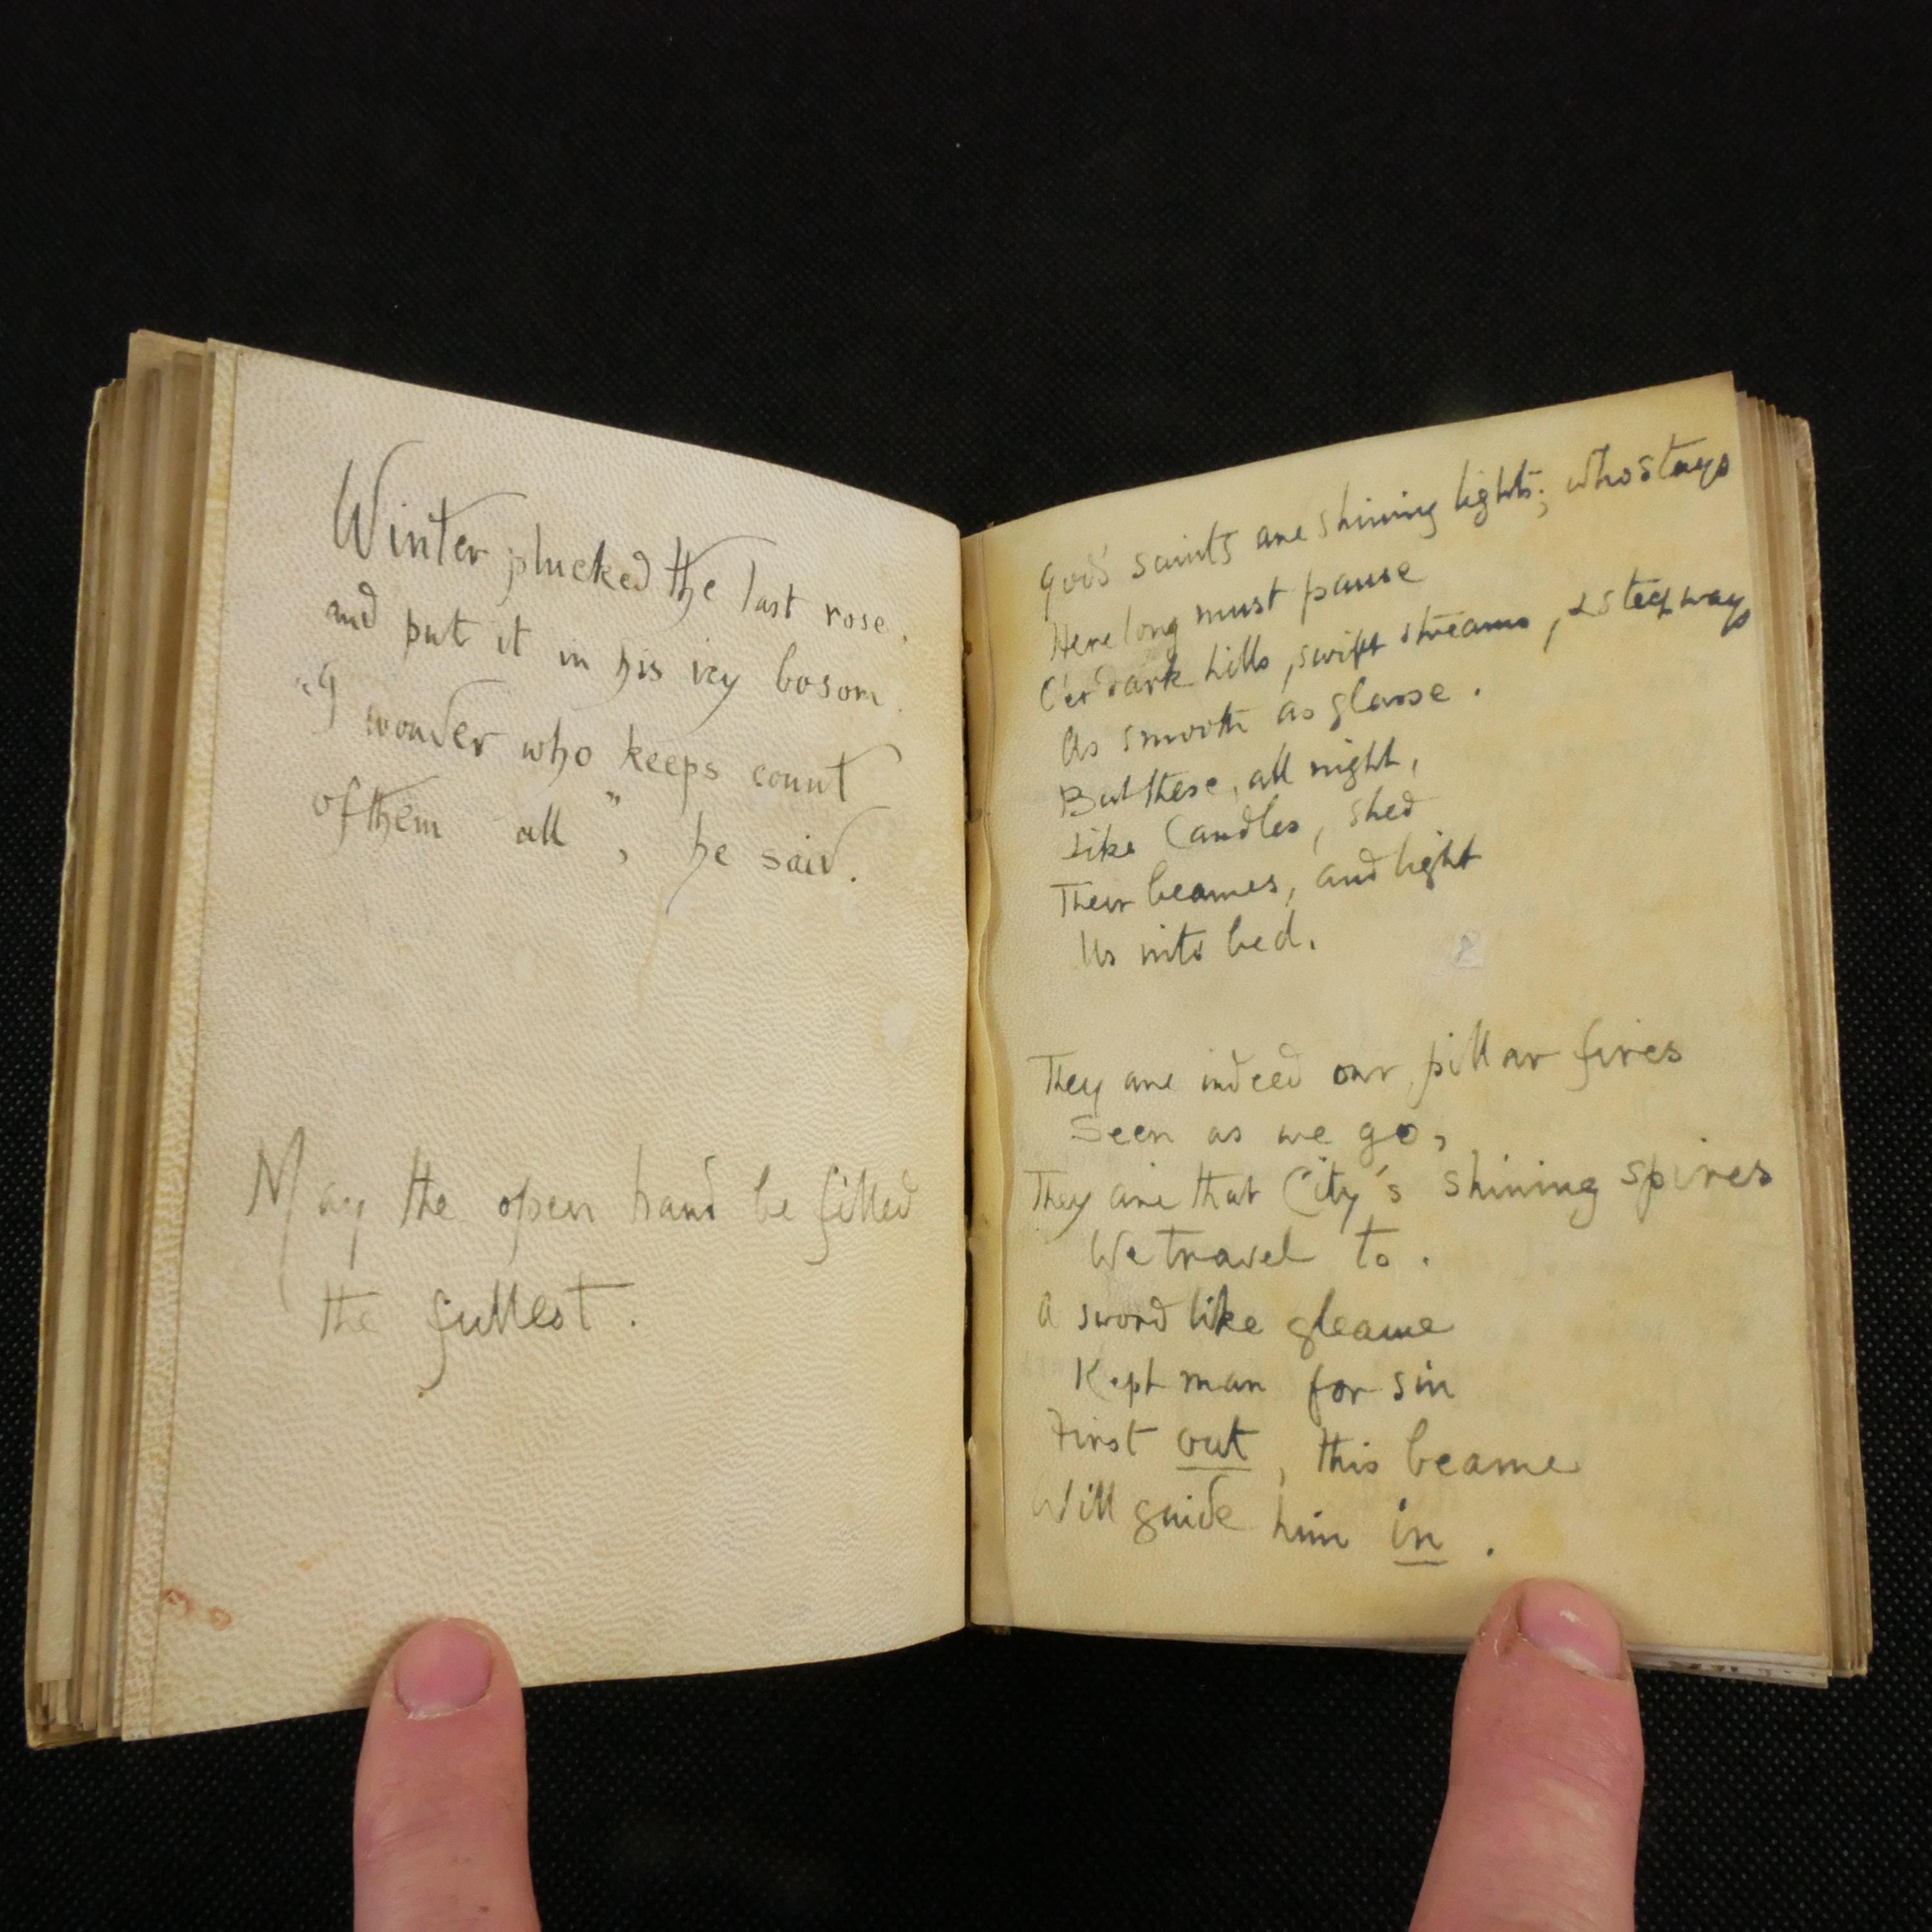 Winter plucked the last rose.
and put it in his icy bosom.
"I wonder who keeps count
of them all", he said.
May the open hand be filled
the fullest.
God's saints are shining lights; who stays
Here long must pause
O'er dark hills, swift streams, & steep ways
As smooth as glasse.
But these, all night,
Like Candles, shed
Their beames, and light
Us into bed.
They are indeed our pillar fires
Seen as we go,
They are that City's shining spires
We travel to.
A sword like gleame
Kept man for sin
First out, this beame
Will guide him in.